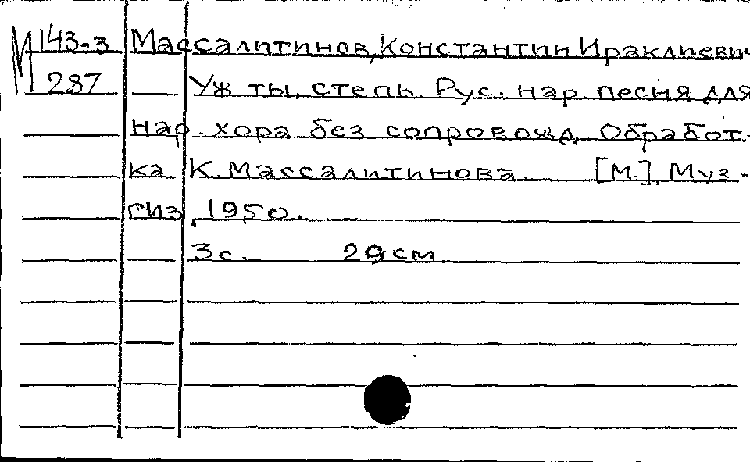 М 143-3 Массалитинов, Константин Ираклиевич
287 Уж ты, степь. Рус. нар. песня для
нар. хора без сопровожд. Обработ-
ка К. Массалитинова. [М.], Муз-
гиз, 1950.
3 с. 29 см